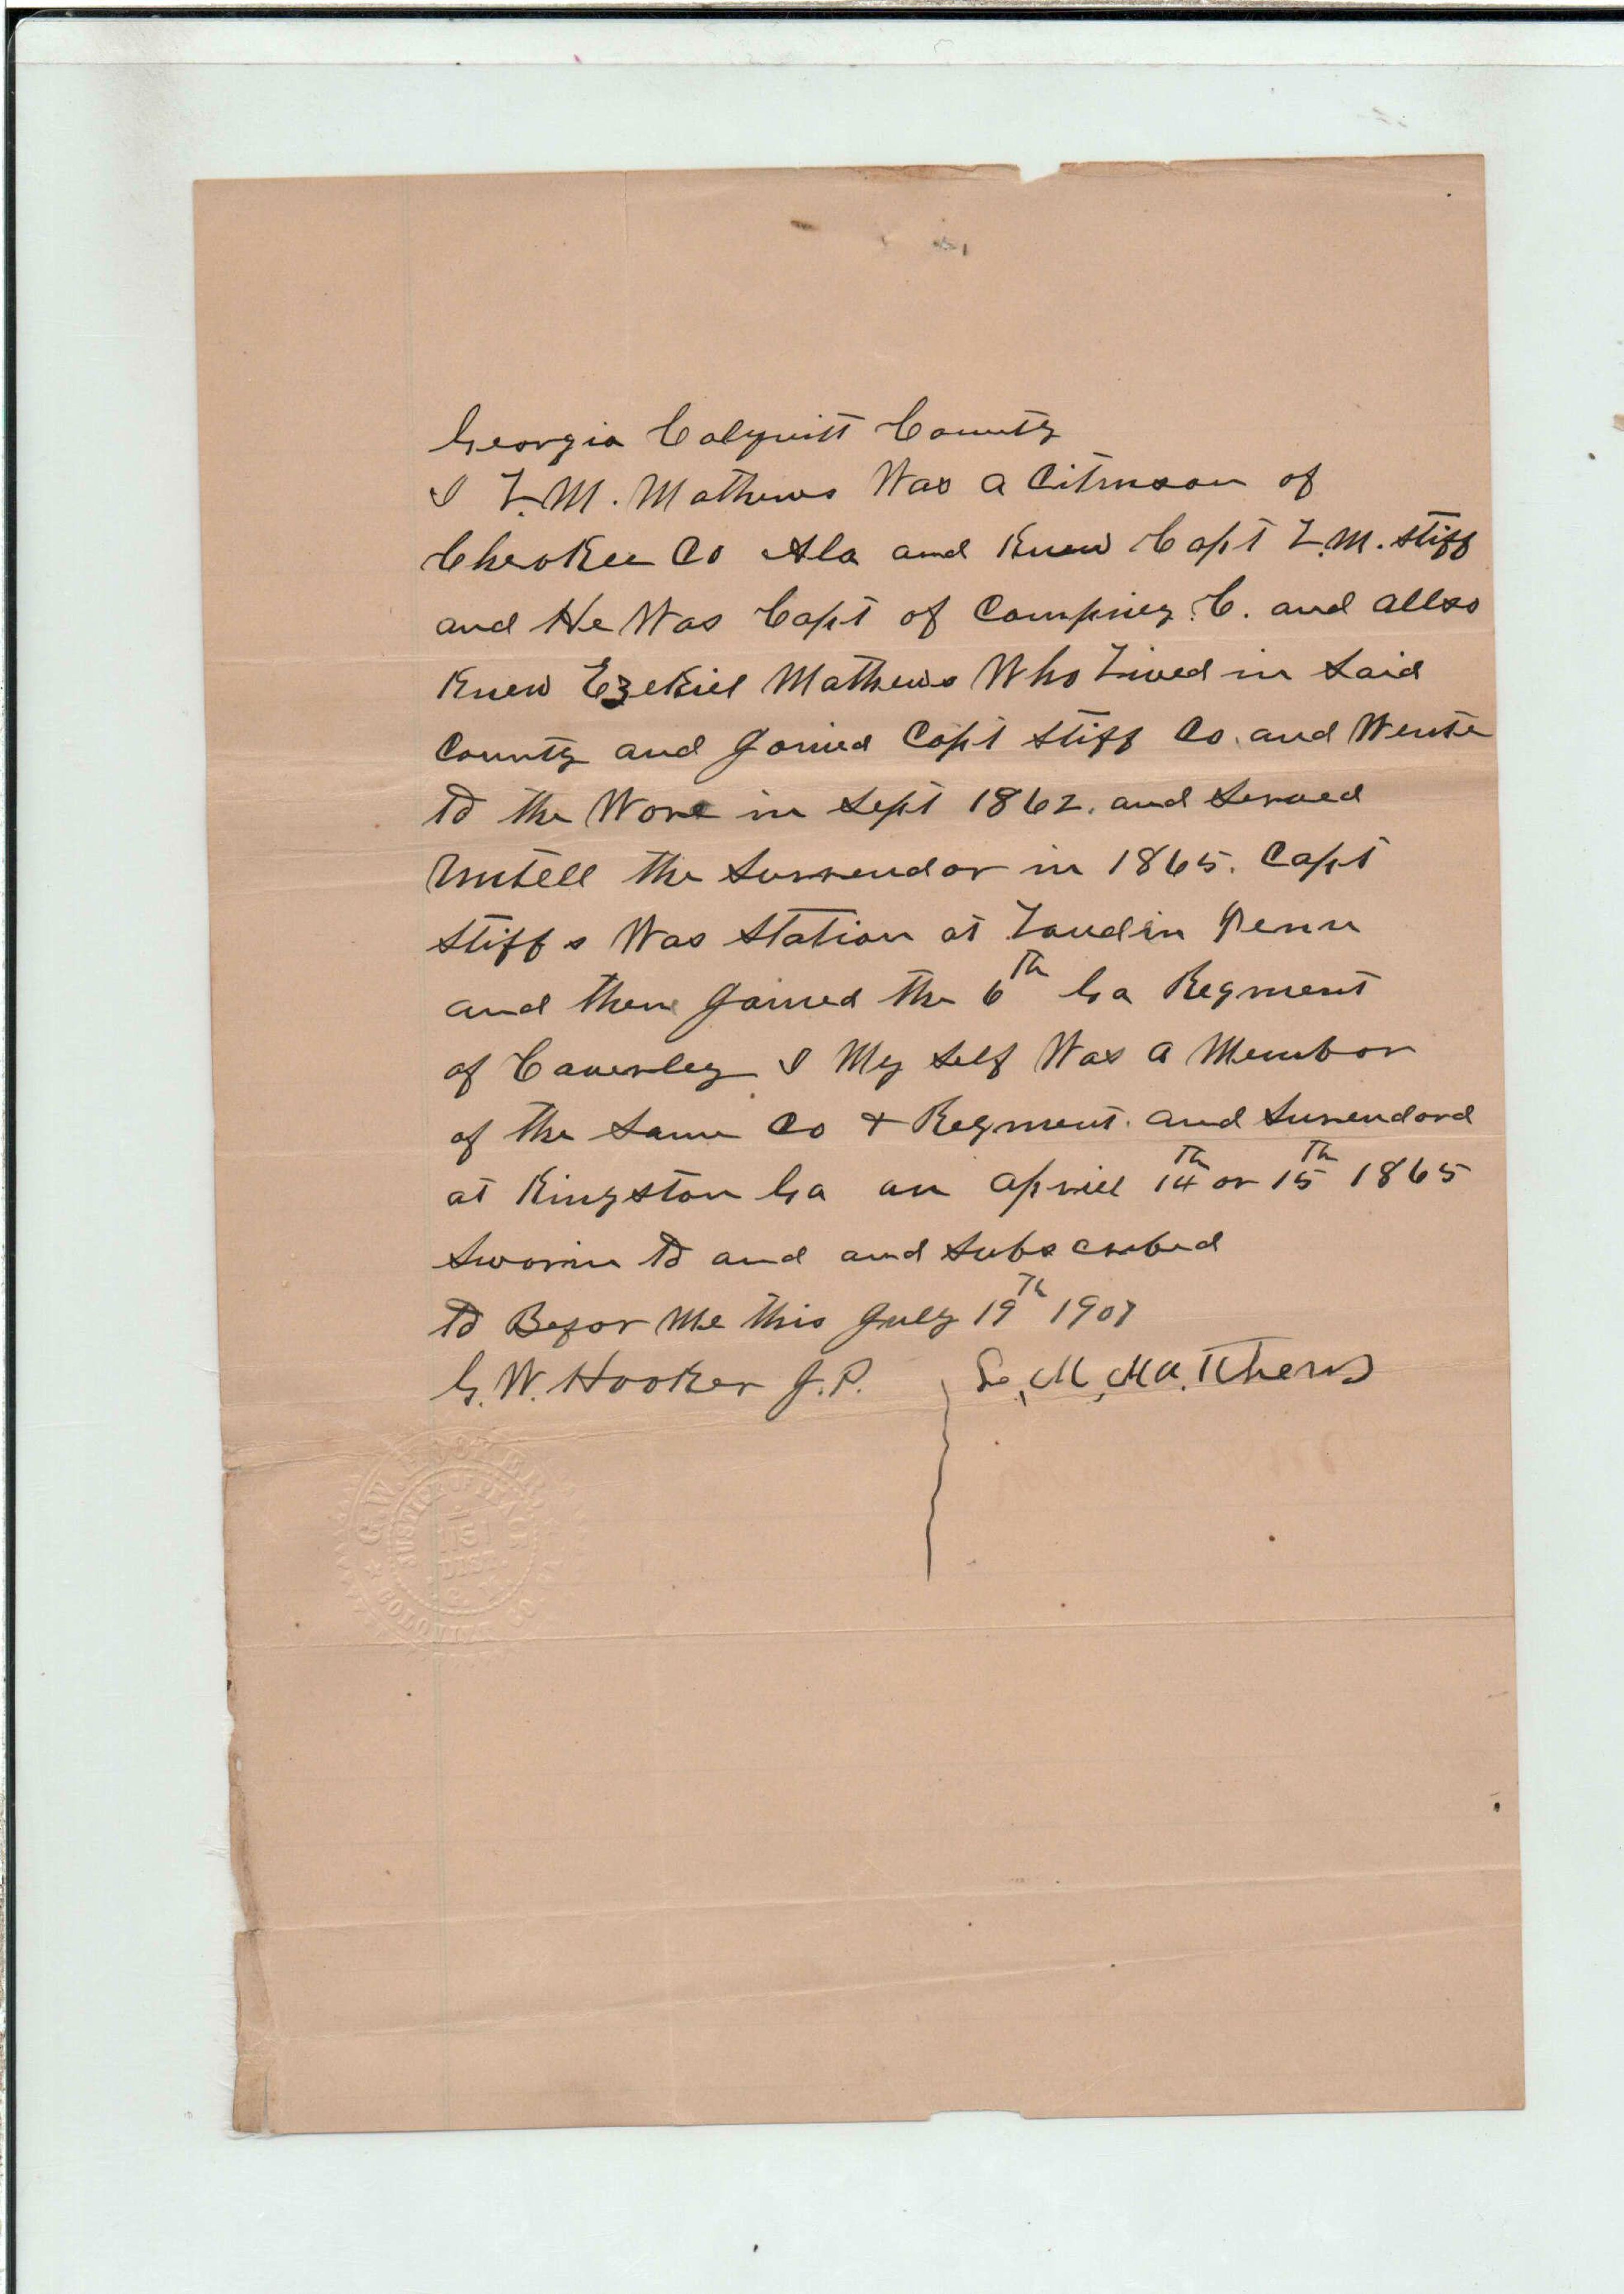 Georgia Colquitt County
I L.M. Mathews Was a Citinson of
Cherokee Co Ala and Knew Capt L.M. Stiff
and He Was Capt of Compney C. and allso
Knew Ezekiel Mathews Who Lived in Said
County and Joined Capt Stiff Co. and Wente
to the Wore in Sept 1862. and Served
Untell the Surrendor in 1865. Capt
Stiffs Was Station at Loudin Tenn
and then Joined the 6th Ga Regment
of Caverley I My Self Was a Member
of the Same Co & Regment. and Surendord
at Kingston Ga an Apriel 14th or 15th 1865
Sworin to and and Subscribed
to Befor Me this July 19th 1907
G.W. Hooker J.P. L. M. Matthews
G.W. HOOKER
JUSTICE OF PEACE
DIST.
COLQUITT CO. GA.